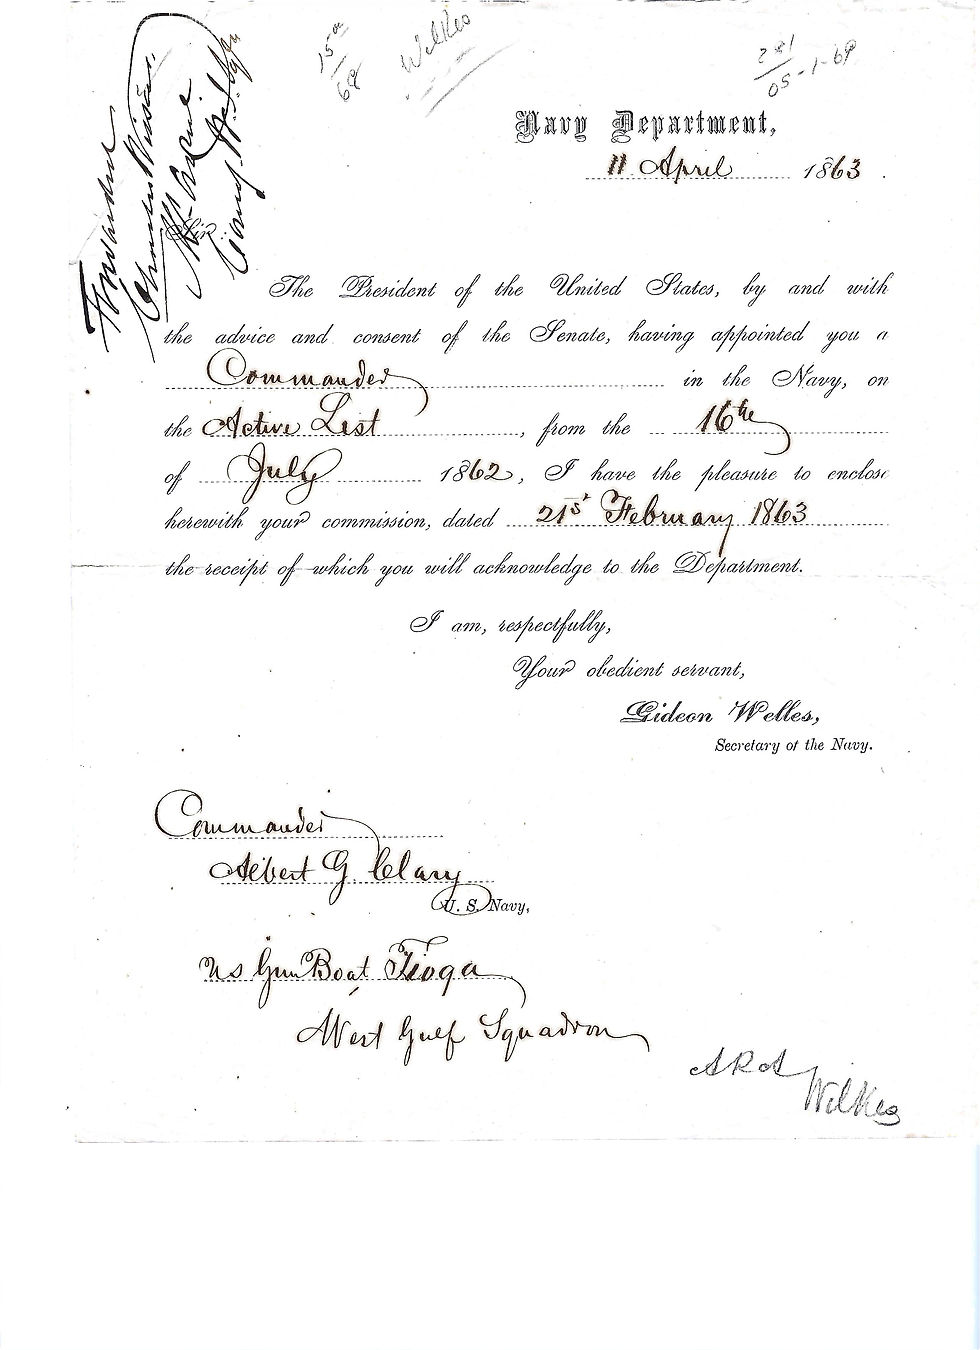 Wilkes
Navy Department,
11 April 1863.
Sir:
Forwarded
Charles Wilkes.
The President of the United States, by and with
the advice and consent of the Senate, having appointed you a
Commander in the Navy, on
the Active List, from the 16th
of July 1862, I have the pleasure to enclose
herewith your commission, dated 21st February 1863
the receipt of which you will acknowledge to the Department.
I am, respectfully,
Your obedient servant,
Gideon Welles,
Secretary of the Navy.
Commander
Albert G. Clary
U. S. Navy,
US Gun Boat Tioga
West Gulf Squadron
Wilkes